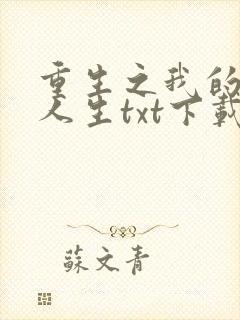 重生之我的
人生txt下載
蘇文青